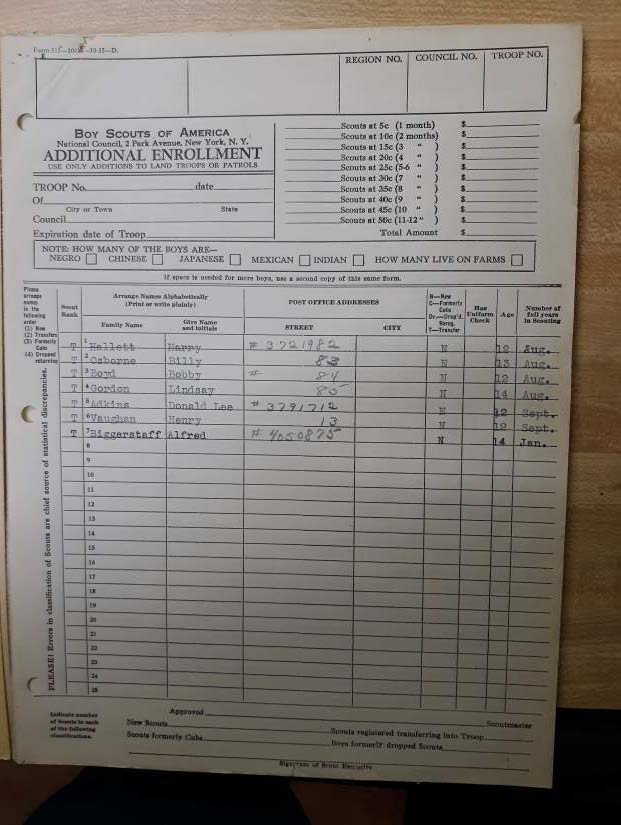 REGION NO. COUNCIL NO. TROOP NO.
BOY SCOUTS OF AMERICA
National Council, 2 Park Avenue, New York, N. Y.
ADDITIONAL ENROLLMENT
USE ONLY ADDITIONS TO LAND TROOPS OR PATROLS
TROOP No. date
Of
City or Town State
Council
Expiration date of Troop
Scouts at 5c (1 month) $
Scouts at 10c (2 months) $
Scouts at 15c (3 " ) $
Scouts at 20c (4 " ) $
Scouts at 25c (5-6 " ) $
Scouts at 30c (7 " ) $
Scouts at 35c (8 " ) $
Scouts at 40c (9 " ) $
Scouts at 45c (10 " ) $
Scouts at 50c (11-12 " ) $
Total Amount $
NOTE: HOW MANY OF THE BOYS ARE—
NEGRO CHINESE JAPANESE MEXICAN INDIAN HOW MANY LIVE ON FARMS
If space is needed for more boys, use a second copy of this same form.
Please arrange names in the following order
(1) New
(2) Transfers
(3) Formerly Cubs
(4) Dropped returning
PLEASE! Errors in classification of Scouts are chief source of statistical discrepancies.
Scout Rank
Arrange Names Alphabetically
(Print or write plainly)
Family Name Give Name and Initials
POST OFFICE ADDRESSES
STREET CITY
N—New
C—Formerly Cubs
Dr.—Drop'd Rereg.
T—Transfer
Has Uniform Check
Age
Number of full years in Scouting
T 1 Hellett Harry # 3721982 N 12 Aug.
T 2 Osborne Billy 83 N 13 Aug.
T 3 Boyd Bobby # 84 N 12 Aug.
T 4 Gordon Lindsay 85 N 14 Aug.
T 5 Adkins Donald Lee # 3791712 N 12 Sept.
T 6 Vaughan Henry 13 N 12 Sept.
T 7 Biggerstaff Alfred # 4050875 N 14 Jan.
8
9
10
11
12
13
14
15
16
17
18
19
20
21
22
23
24
25
Indicate number of Scouts in each of the following classifications.
Approved Scoutmaster
New Scouts Scouts registered transferring into Troop
Scouts formerly Cubs Boys formerly dropped Scouts
Signature of Scout Executive